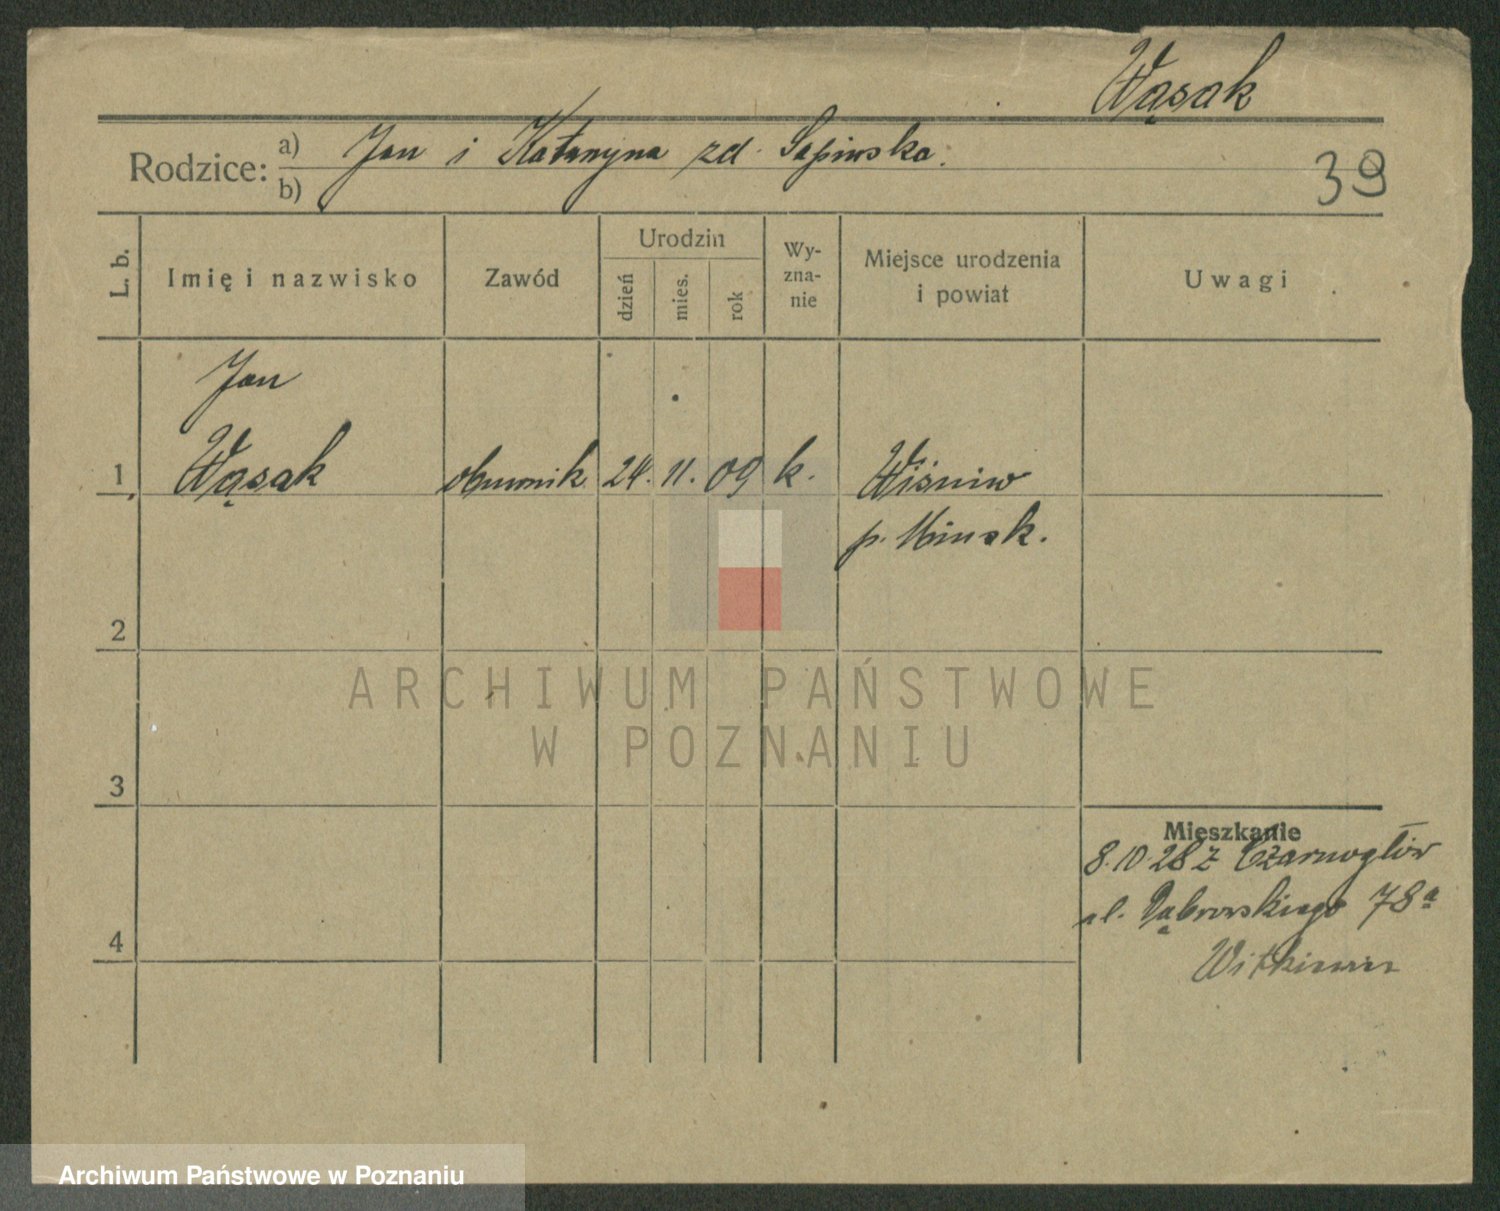 Wąsak
Rodzice: a) Jan i Katarzyna zd. Sapińska.
b)
39
L. b.
Imię i nazwisko
Zawód
Urodzin
dzień
mies.
rok
Wy-
zna-
nie
Miejsce urodzenia
i powiat
Uwagi
Jan
1 Wąsak 24. 11. 09 k. Wiśniw
p. Minsk.
2
3
4
Mieszkanie
8.10 28 z Czarnogłów
ul. Dąbrowskiego 78a
ARCHIWUM PAŃSTWOWE
W POZNANIU
Archiwum Państwowe w Poznaniu